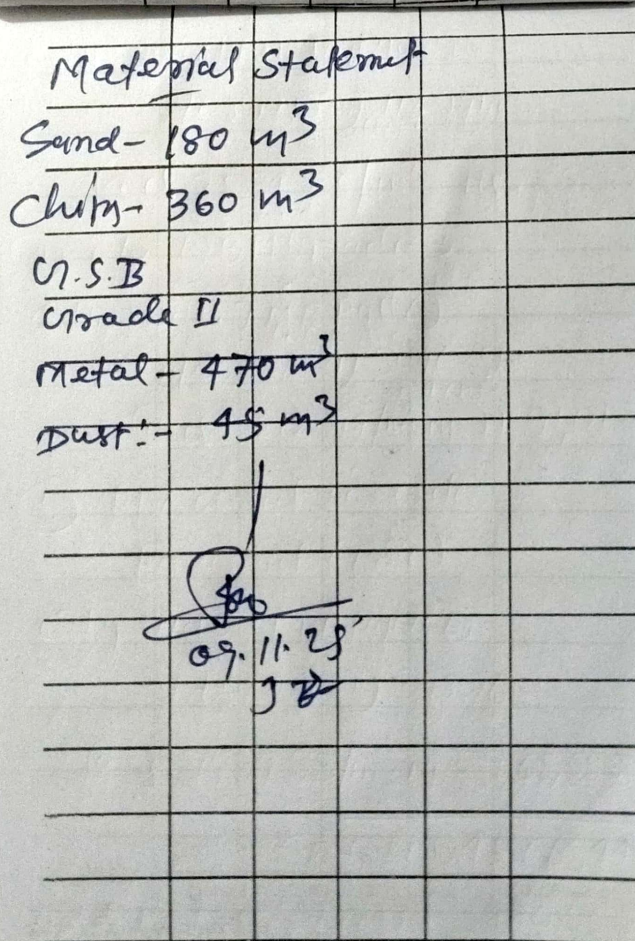 Material Statement
Sand- 180 m³
Chips- 360 m³
G.S.B
Grade II
Metal- 470 m³
Dust:- 45 m³
09.11.25
JE